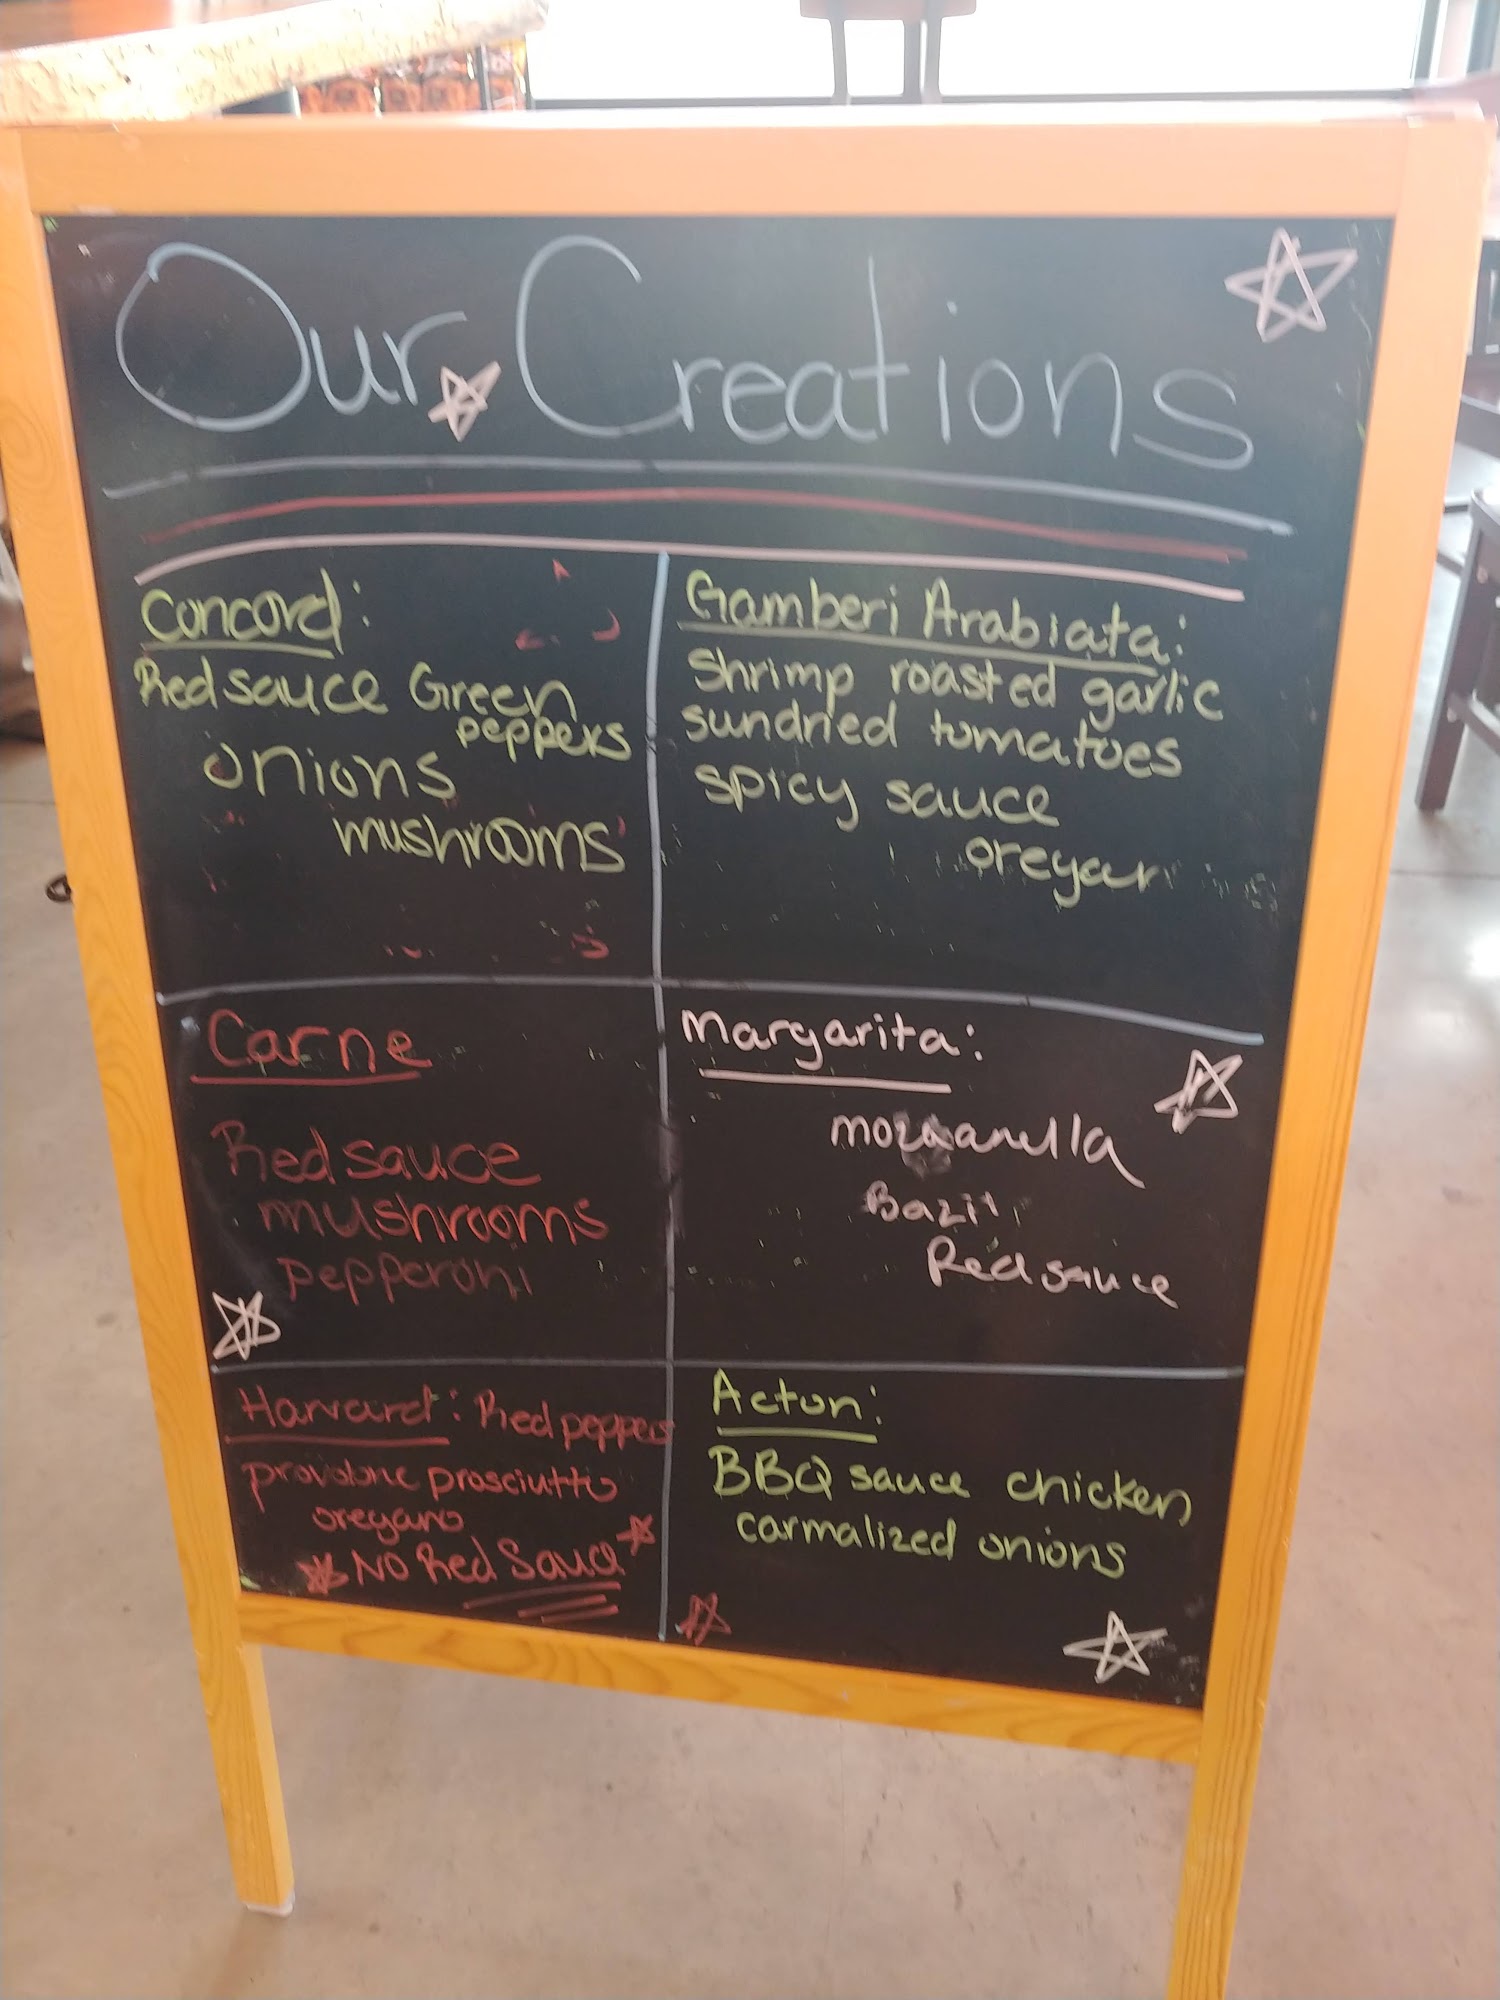 Our Creations
Concord:
Red sauce Green
peppers
onions
mushrooms
Gamberi Arabiata:
Shrimp roasted garlic
sundried tomatoes
spicy sauce
Carne
Red sauce
mushrooms
pepperoni
Margarita:
Bazil
Red sauce
Harvard: Red peppers
provolone prosciutto
oregano
NO Red Sauce
Acton:
BBQ sauce chicken
carmalized onions